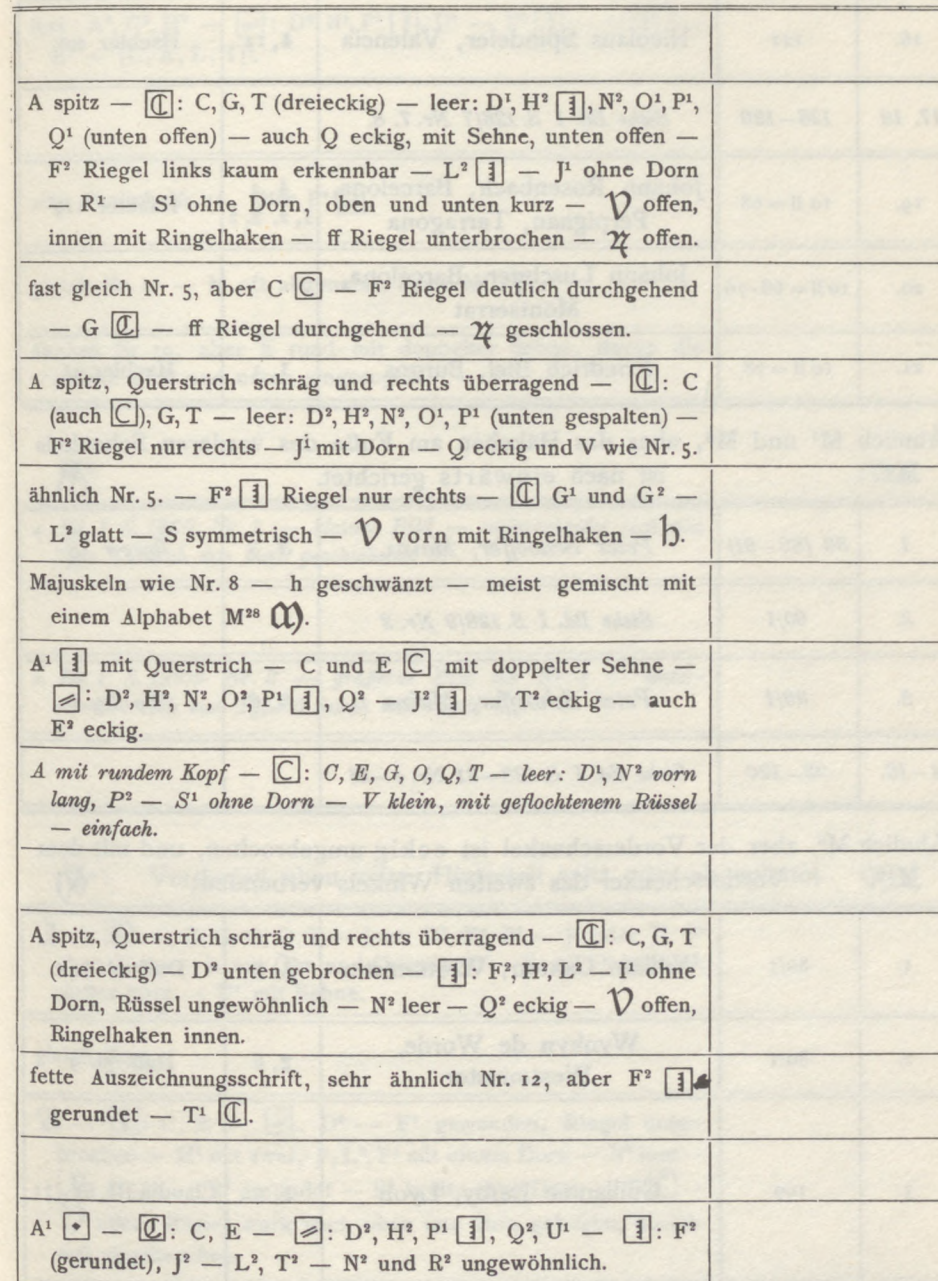 A spitz — [ℂ]: C, G, T (dreieckig) — leer: D¹, H² [ʒ], N², O¹, P¹,
Q¹ (unten offen) — auch Q eckig, mit Sehne, unten offen —
F² Riegel links kaum erkennbar — L² [ʒ] — J¹ ohne Dorn
R¹ — S¹ ohne Dorn, oben und unten kurz — V offen,
innen mit Ringelhaken — ff Riegel unterbrochen — offen.
fast gleich Nr. 5, aber C [C] — F² Riegel deutlich durchgehend
— G [ℂ] — ff Riegel durchgehend — geschlossen.
A spitz, Querstrich schräg und rechts überragend — [ℂ]: C
(auch [C]), G, T — leer: D², H², N², O¹, P¹ (unten gespalten) —
F² Riegel nur rechts — J¹ mit Dorn — Q eckig und V wie Nr. 5.
ähnlich Nr. 5. — F² [ʒ] Riegel nur rechts — [ℂ] G¹ und G² —
L² glatt — S symmetrisch — V vorn mit Ringelhaken — h.
Majuskeln wie Nr. 8 — h geschwänzt — meist gemischt mit
einem Alphabet M²⁸ M.
A¹ [ʒ] mit Querstrich — C und E [C] mit doppelter Sehne —
[⹀]: D², H², N², O², P¹ [ʒ], Q² — J² [ʒ] — T² eckig — auch
E² eckig.
A mit rundem Kopf — [C]: C, E, G, O, Q, T — leer: D¹, N² vorn
lang, P² — S¹ ohne Dorn — V klein, mit geflochtenem Rüssel
— einfach.
A spitz, Querstrich schräg und rechts überragend — [ℂ]: C, G, T
(dreieckig) — D² unten gebrochen — [ʒ]: F², H², L² — I¹ ohne
Dorn, Rüssel ungewöhnlich — N² leer — Q² eckig — V offen,
Ringelhaken innen.
fette Auszeichnungsschrift, sehr ähnlich Nr. 12, aber F² [ʒ]
gerundet — T¹ [ℂ].
A¹ [•] — [ℂ]: C, E — [⹀]: D², H², P¹ [ʒ], Q², U¹ — [ʒ]: F²
(gerundet), J² — L², T² — N² und R² ungewöhnlich.